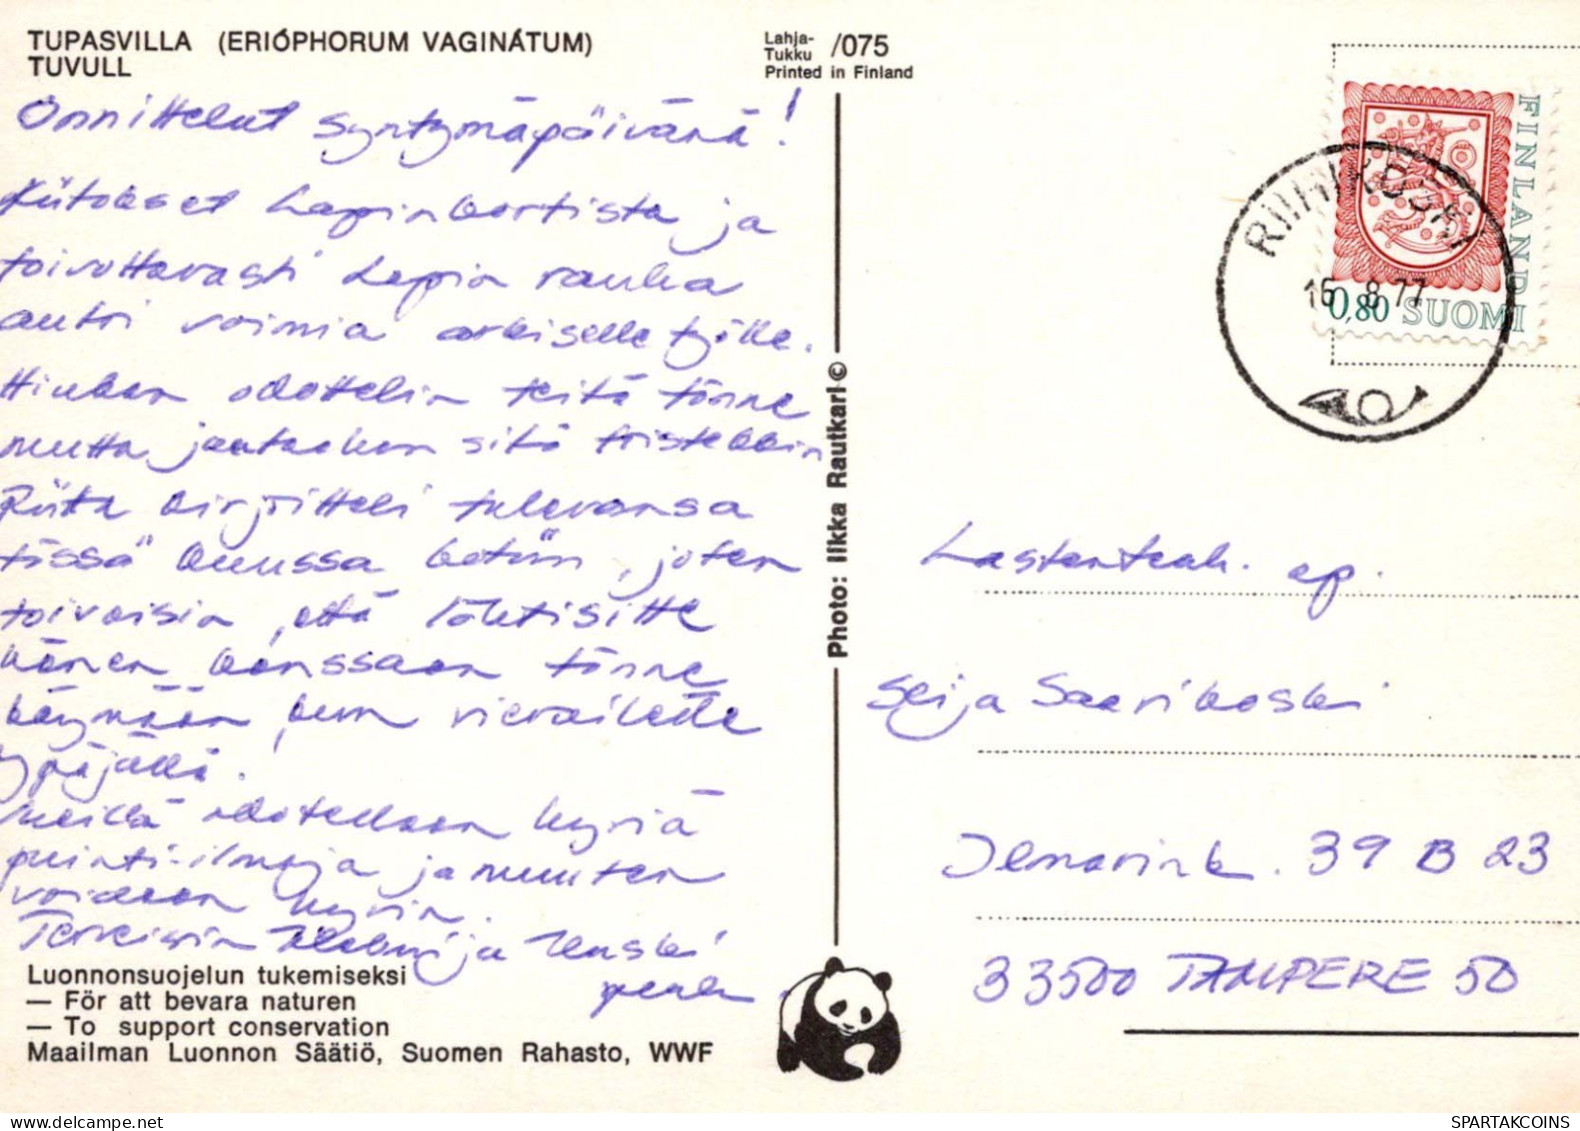 TUPASVILLA (ERIÓPHORUM VAGINÁTUM)
TUVULL
Lahja-
Tukku /075
Printed in Finland
Onnittelut syntymäpäivänä!
Kiitokset Lapinkortista ja
toivottavasti Lapin rauha
antoi voimia arkiselle työlle.
Hiukan odottelin teitä tänne
mutta jaataahan sitä toistekkin
Riita kirjoitteli tulevansa
tässä kuussa kotiin, joten
toivoisin, että lähtisitte
hänen kanssaan tänne
käymään, kun vierailette
ypäjällä.
Meillä odotellaan hyviä
puinti-ilmoja ja muuten
voidaan hyvin.
Terveisin ja
Luonnonsuojelun tukemiseksi
— För att bevara naturen
— To support conservation
Maailman Luonnon Säätiö, Suomen Rahasto, WWF
Photo: Ilkka Rautkari ©
FINLAND
0,80 SUOMI
RIIHIKOSKI
8 77
Lastentarh. op.
Seija Saarikoski
Ilmarink. 39 B 23
33500 TAMPERE 50
SPARTAKCOINS